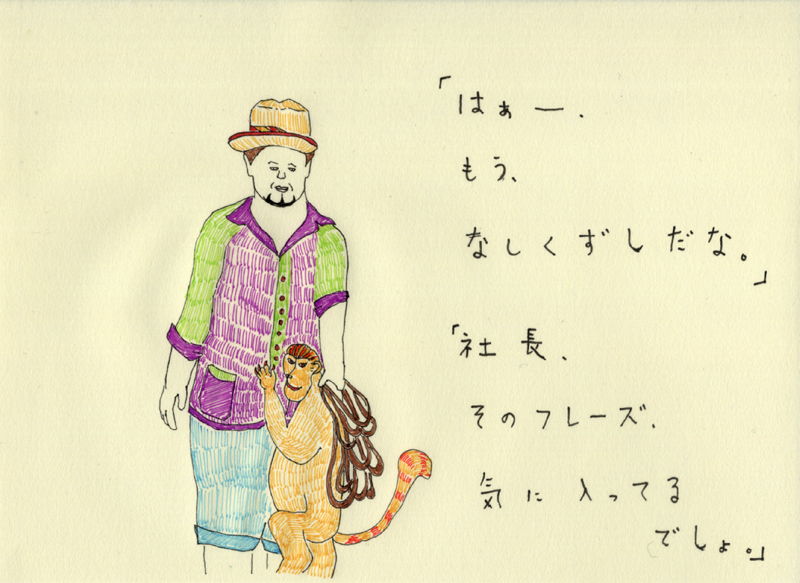 「はぁー、
もう、
なしくずしだな。」
「社長、
そのフレーズ、
気に入ってる
でしょ。」